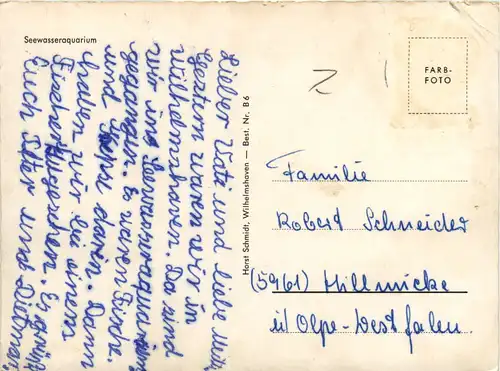 Seewasseraquarium
Lieber Vati und liebe Mutti
Gestern waren wir in
Wilhelmshaven. Da sind
wir ins Seewasseraquarium
gegangen. Es waren Fische
und darin. Dann
haben wir bei einem
Fischer zugesehen. Es grüßt
Euch Elter und Dietmar
Horst Schmidt, Wilhelmshaven — Best. Nr. B 6
FARB-
FOTO
Familie
Robert Schneider
(5961) Hillmicke
ü/ Olpe-Westfalen.